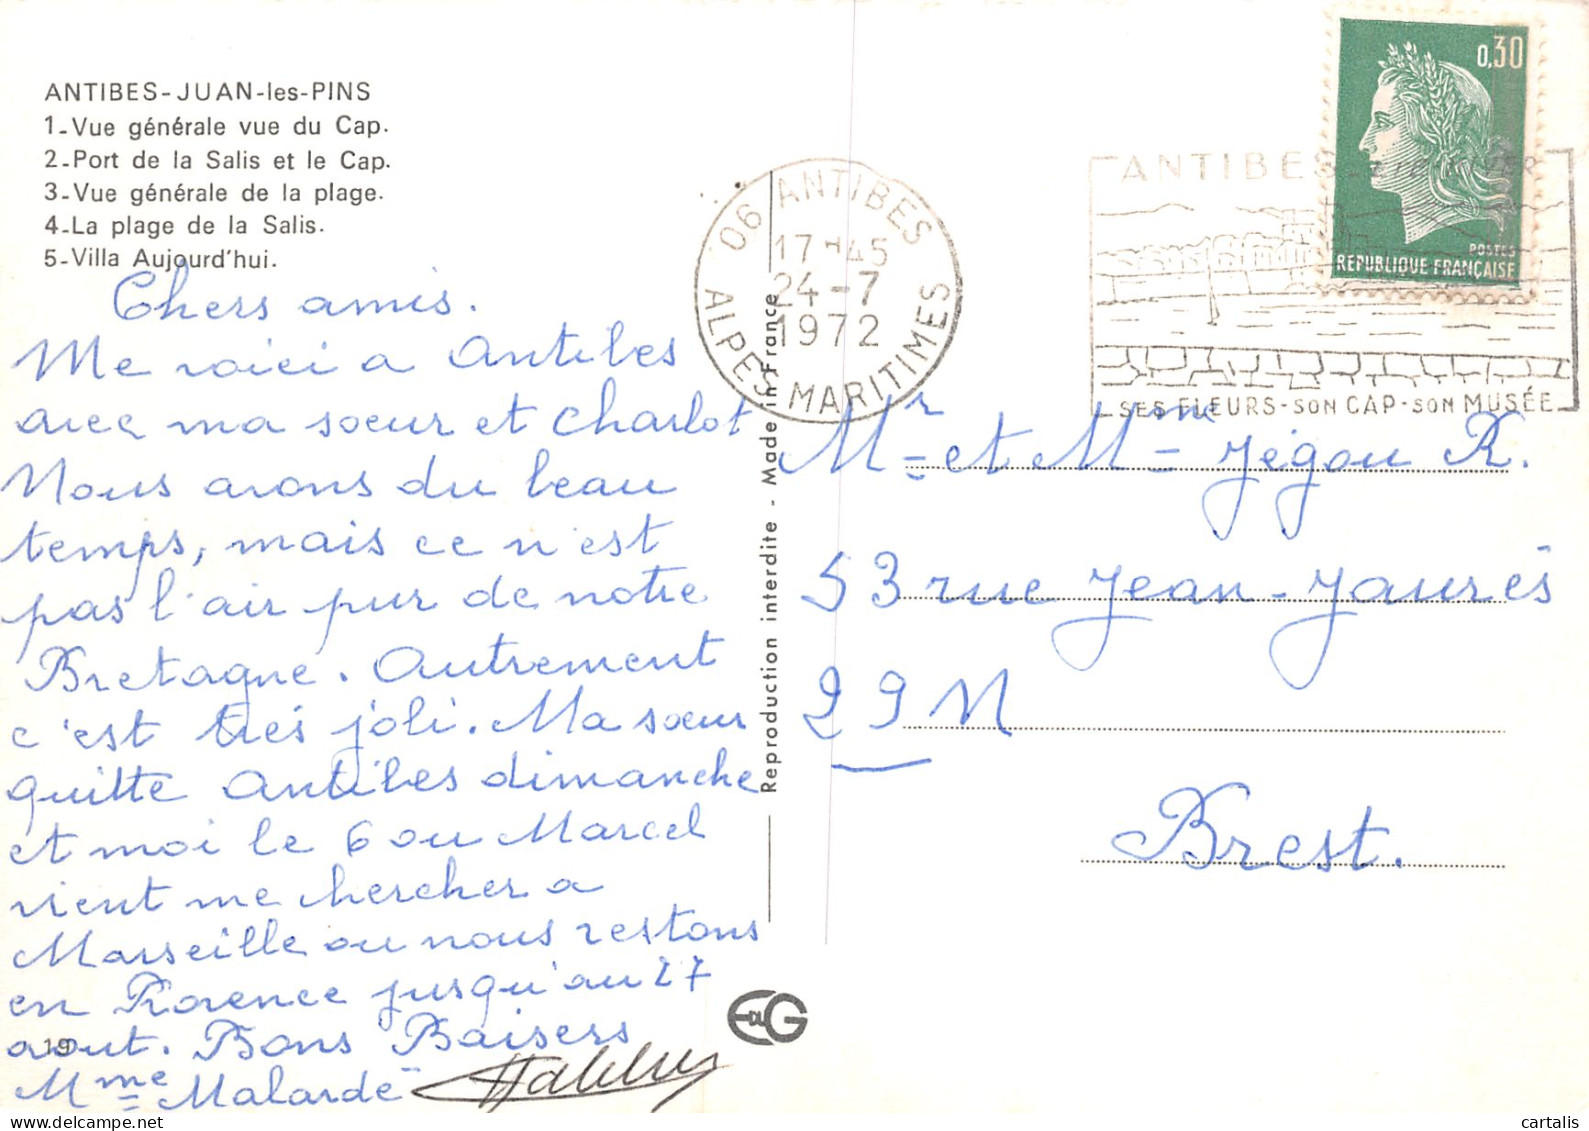 ANTIBES-JUAN-les-PINS
1-Vue générale vue du Cap.
2-Port de la Salis et le Cap.
3-Vue générale de la plage.
4-La plage de la Salis.
5-Villa Aujourd'hui.
Chers amis.
Me voici a Antibes
avec ma soeur et Charlot
Nous avons du beau
temps, mais ce n'est
pas l'air pur de notre
Bretagne. Autrement
c'est trés joli. Ma sœur
quitte Antibes dimanche
et moi le 6 ou Marcel
vient me chercher a
Marseille ou nous restons
en Provence jusqu'au 27
aout. Bons Baisers
19
Mme Malardé
Reproduction interdite - Made in France
06 ANTIBES
17H45
24-7
1972
ALPES MARITIMES
ANTIBES
SES FLEURS-SON CAP-SON MUSÉE
0,30
POSTES
REPUBLIQUE FRANÇAISE
Mr et Mme Jégou R.
53 rue Jean-Jaurés
29 N
Brest.
EG
cartalis